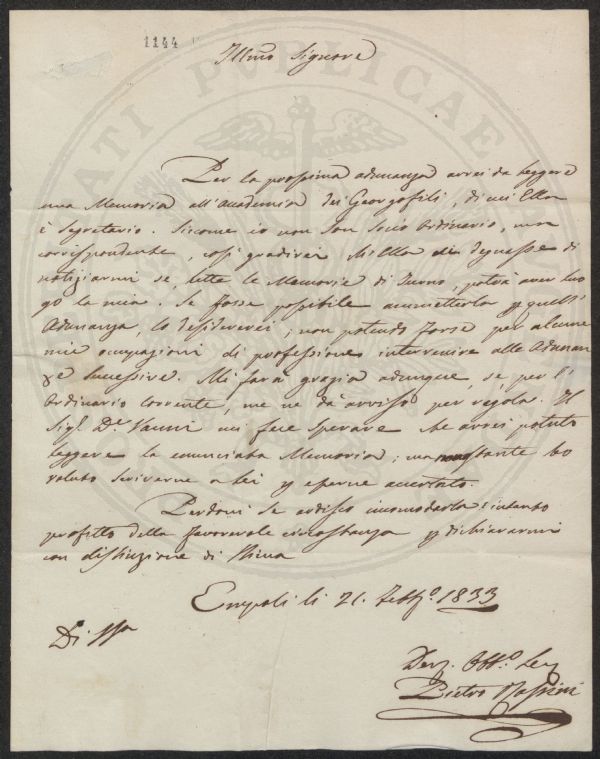 1144
Illmo Signore
Per la prossima adunanza avrei da leggere
una Memoria all'Accademia dei Georgofili, di cui Ella
è Segretario. Siccome io non son Socio Ordinario, ma
corrispondente, così gradirei ch'Ella si degnasse di
notiziarmi se, lette le Memorie di Turno, potrà aver luo
go la mia. Se fosse possibile ammetterla p questa
Adunanza, lo desidererei, non potendo forse per alcune
mie occupazioni di professione intervenire alle Adunan
ze successive. Mi farà grazia adunque, se, per l'
Ordinario corrente, me ne dà avviso per regola. Il
Sigr. Dr. mi fece sperare che avrei potuto
leggere la enunciata Memoria; ma nonostante ho
voluto scriverne a Lei p esserne accertato.
Perdoni se ardisco incomodarla; intanto
profitto della favorevole circostanza p dichiararmi
con distinzione di stima
Empoli li 21. Febbo. 1833
Di
Devo. Obbo. Ser
Pietro